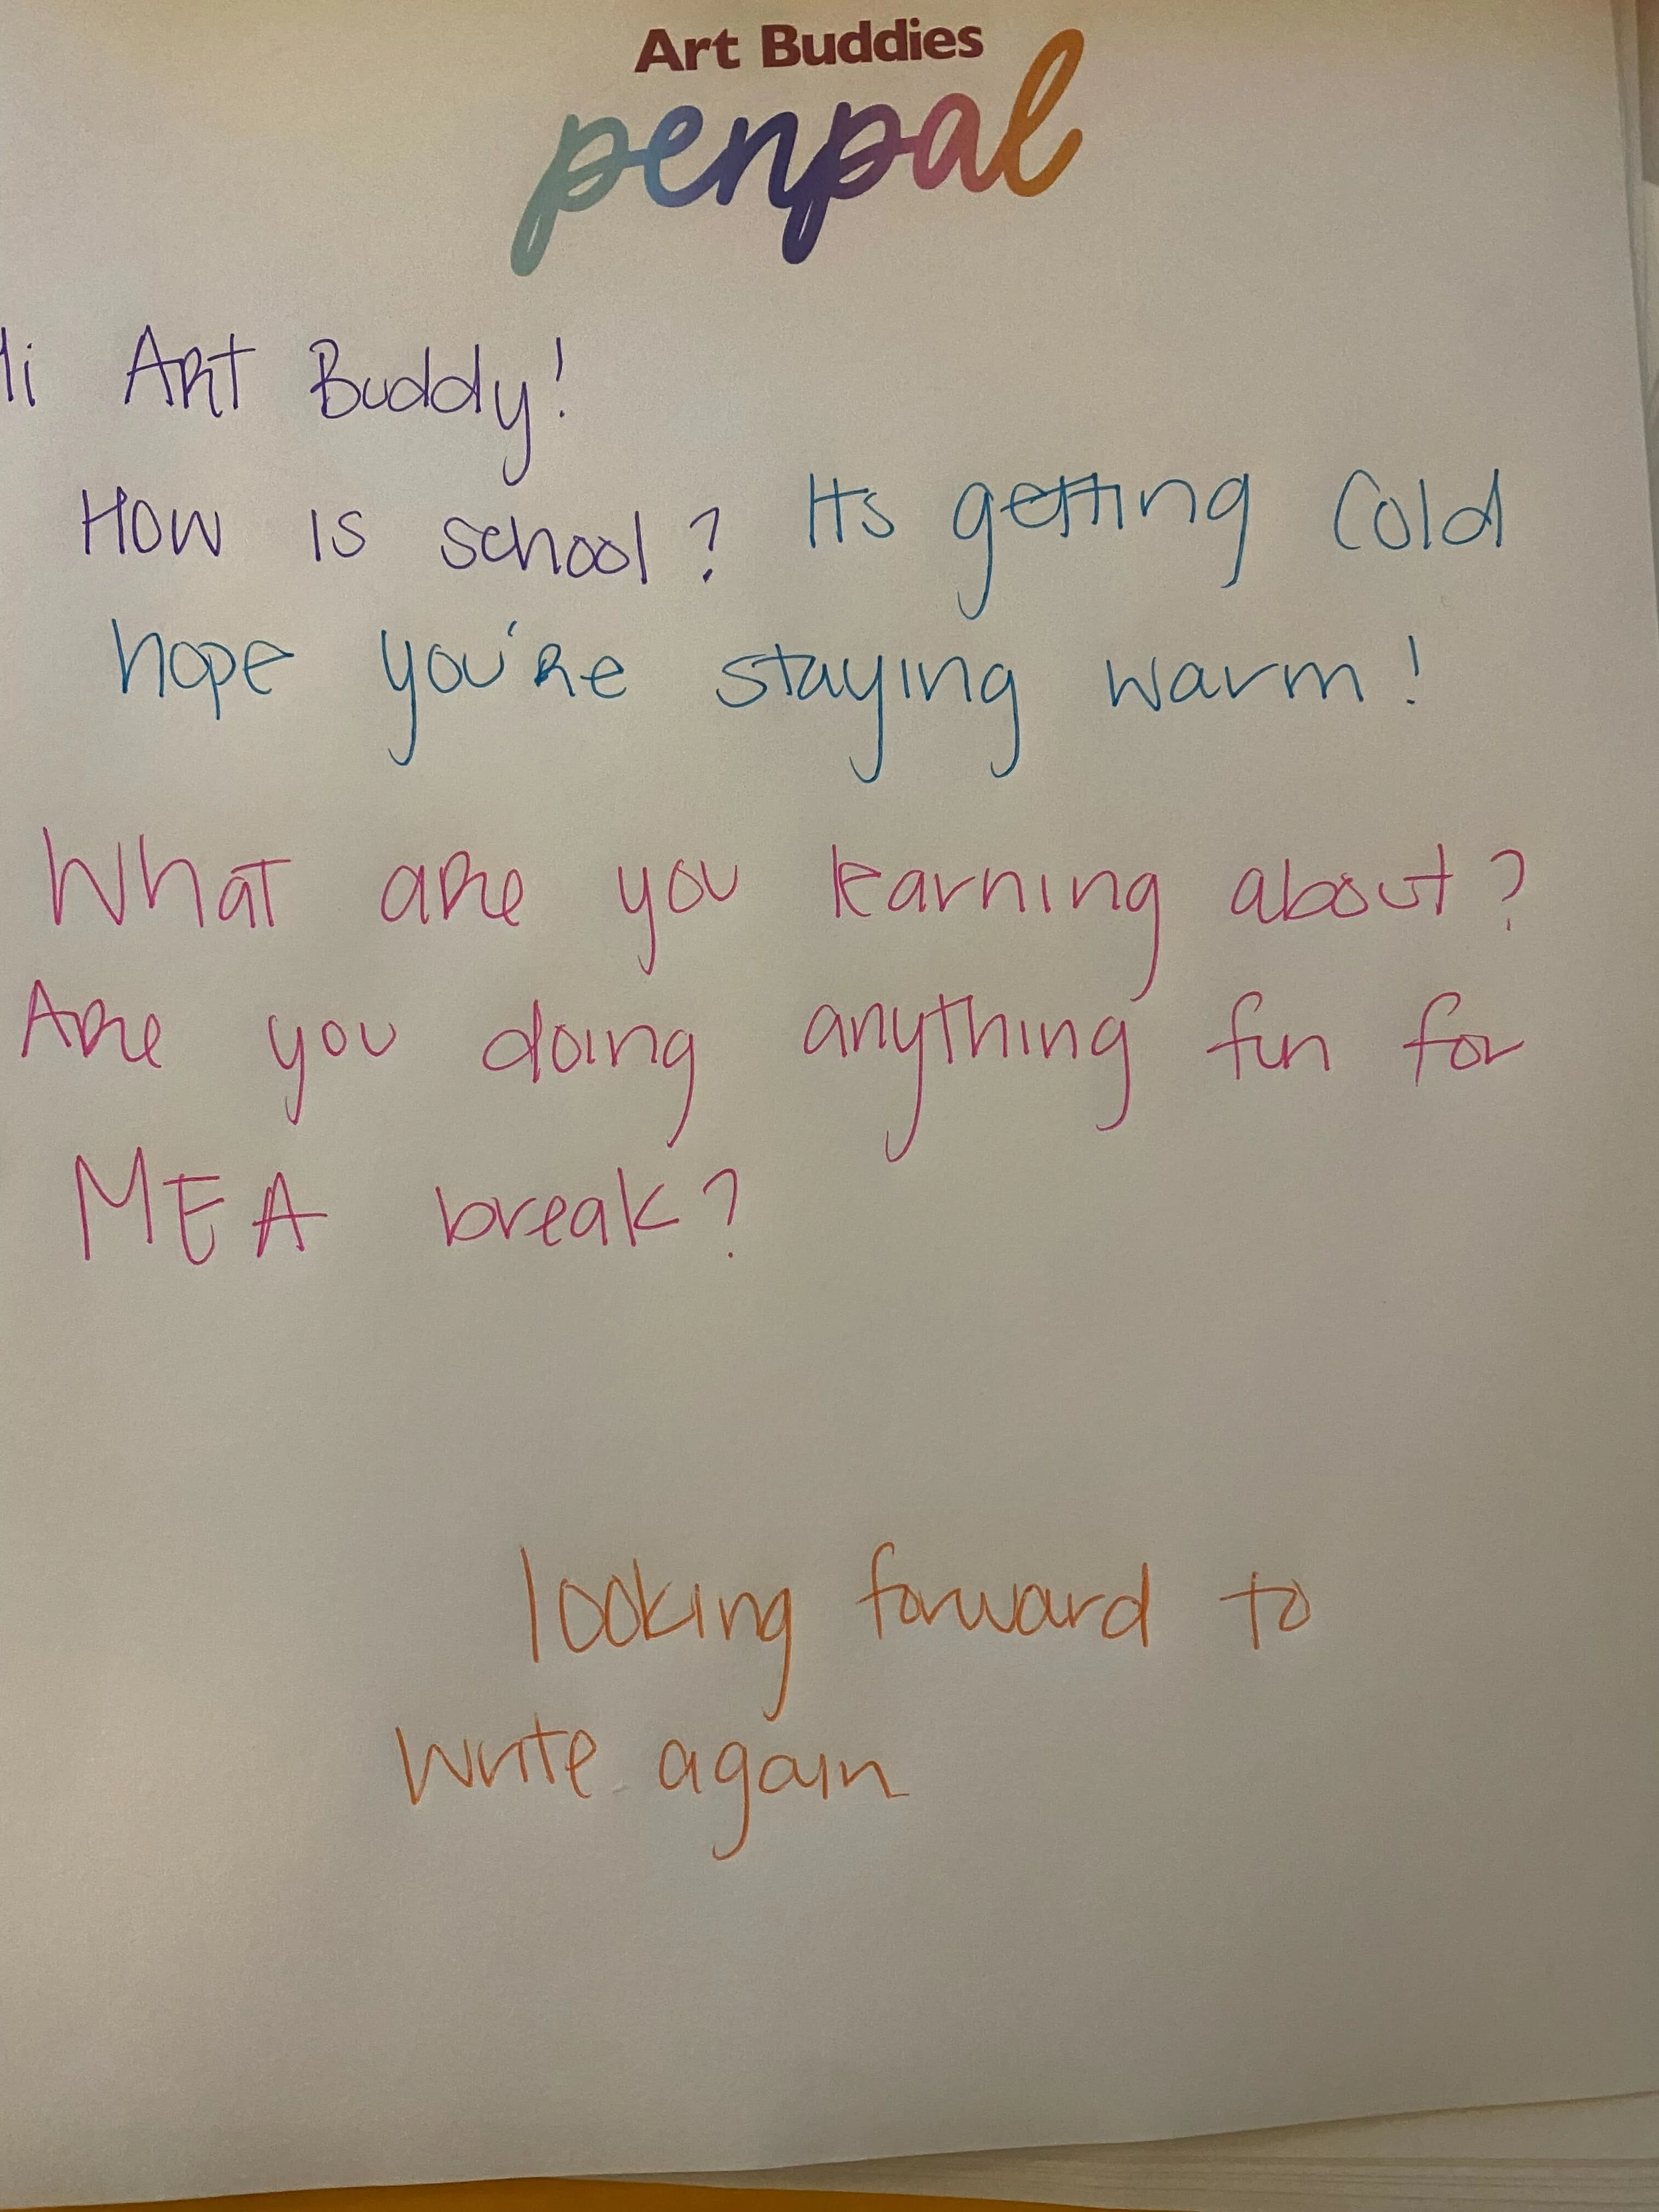 Art Buddies
penpal
Hi Art Buddy!
How is school? Its getting cold
hope you're staying warm!
What are you learning about?
Are you doing anything fun for
MEA break?
looking forward to
write again